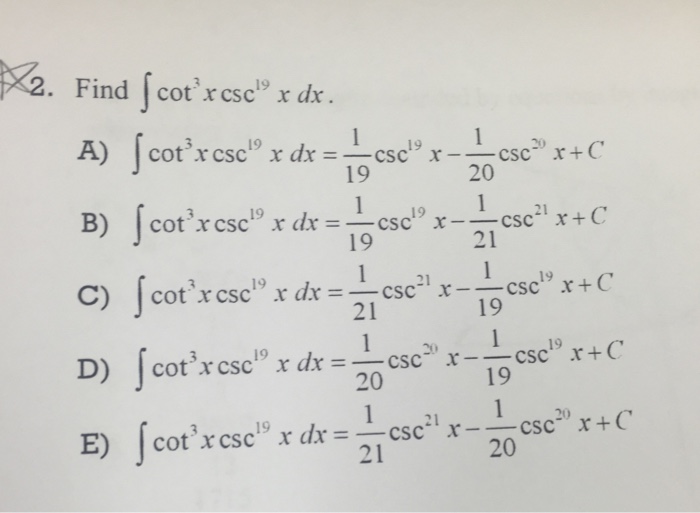 2. Find ∫cot³x csc¹⁹ x dx.
A) ∫cot³x csc¹⁹ x dx = 1/19 csc¹⁹ x − 1/20 csc²⁰ x + C
B) ∫cot³x csc¹⁹ x dx = 1/19 csc¹⁹ x − 1/21 csc²¹ x + C
C) ∫cot³x csc¹⁹ x dx = 1/21 csc²¹ x − 1/19 csc¹⁹ x + C
D) ∫cot³x csc¹⁹ x dx = 1/20 csc²⁰ x − 1/19 csc¹⁹ x + C
E) ∫cot³x csc¹⁹ x dx = 1/21 csc²¹ x − 1/20 csc²⁰ x + C